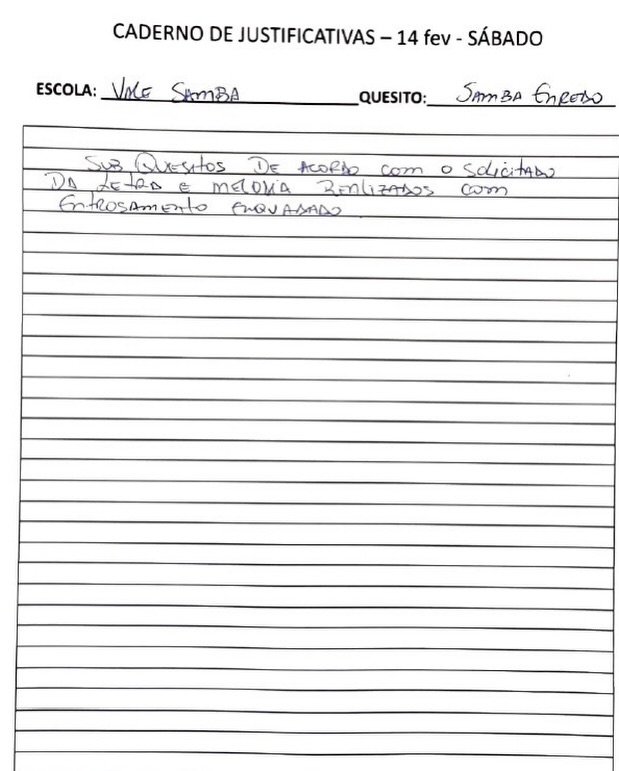 CADERNO DE JUSTIFICATIVAS – 14 fev - SÁBADO
ESCOLA: VALE SAMBA QUESITO: SAMBA ENREDO
SUB QUESITOS DE ACORDO COM O SOLICITADO
DA LETRA E MELODIA REALIZADOS COM
ENTROSAMENTO